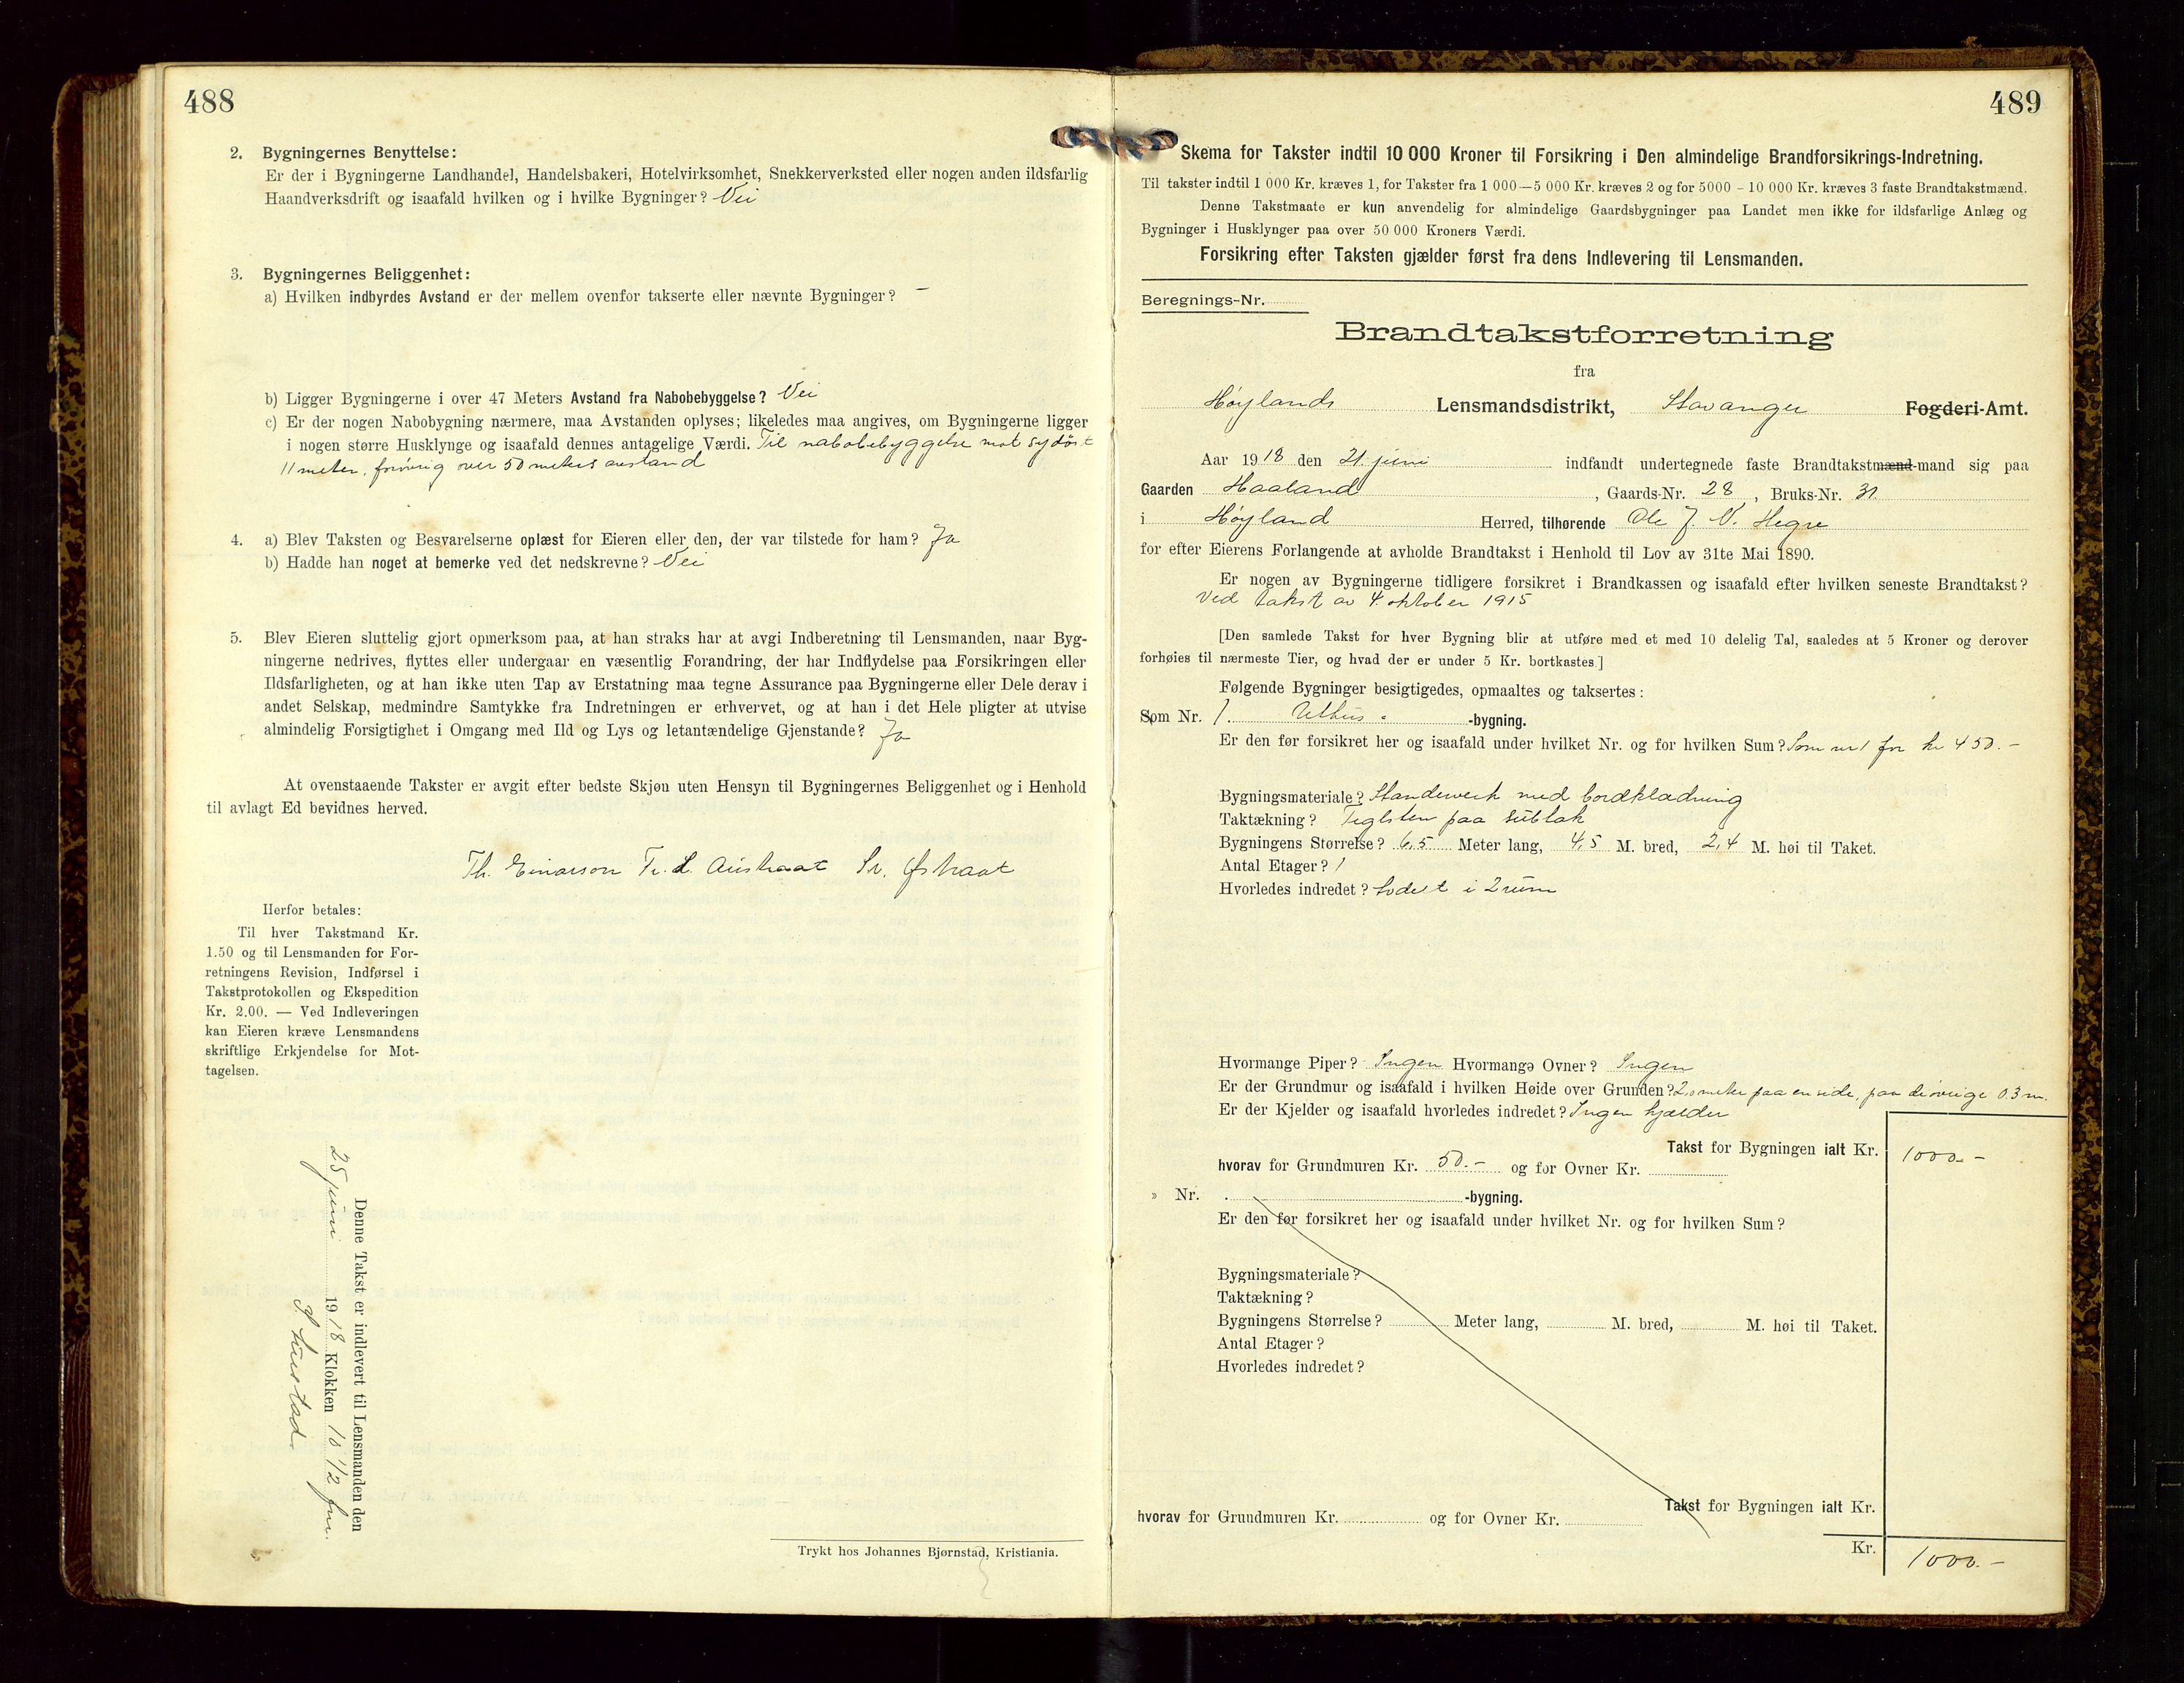 488
2. Bygningernes Benyttelse:
Er der i Bygningerne Landhandel, Handelsbakeri, Hotelvirksomhet, Snekkerverksted eller nogen anden ildsfarlig
Haandverksdrift og isaafald hvilken og i hvilke Bygninger? Nei
3. Bygningernes Beliggenhet:
a) Hvilken indbyrdes Avstand er der mellem ovenfor takserte eller nævnte Bygninger? —
b) Ligger Bygningerne i over 47 Meters Avstand fra Nabobebyggelse? Nei
c) Er der nogen Nabobygning nærmere, maa Avstanden oplyses; likeledes maa angives, om Bygningerne ligger
i nogen større Husklynge og isaafald dennes antagelige Værdi. Til nabobebyggelse mot sydøst
11 meter, forøvrig over 50 meters avstand
4. a) Blev Taksten og Besvarelserne oplæst for Eieren eller den, der var tilstede for ham? Ja
b) Hadde han noget at bemerke ved det nedskrevne? Nei
5. Blev Eieren sluttelig gjort opmerksom paa, at han straks har at avgi Indberetning til Lensmanden, naar Byg-
ningerne nedrives, flyttes eller undergaar en væsentlig Forandring, der har Indflydelse paa Forsikringen eller
Ildsfarligheten, og at han ikke uten Tap av Erstatning maa tegne Assurance paa Bygningerne eller Dele derav i
andet Selskap, medmindre Samtykke fra Indretningen er erhvervet, og at han i det Hele pligter at utvise
almindelig Forsigtighet i Omgang med Ild og Lys og letantændelige Gjenstande? Ja
At ovenstaaende Takster er avgit efter bedste Skjøn uten Hensyn til Bygningernes Beliggenhet og i Henhold
til avlagt Ed bevidnes herved.
Th. Einarson Tr. L. Austraat Sv. Østraat
Herfor betales:
Til hver Takstmand Kr.
1.50 og til Lensmanden for For-
retningens Revision, Indførsel i
Takstprotokollen og Ekspedition
Kr. 2.00. — Ved Indleveringen
kan Eieren kræve Lensmandens
skriftlige Erkjendelse for Mot-
tagelsen.
Denne Takst er indlevert til Lensmanden den
25 juni 1918 Klokken 10 1/2 fm.
Trykt hos Johannes Bjørnstad, Kristiania.
489
Skema for Takster indtil 10 000 Kroner til Forsikring i Den almindelige Brandforsikrings-Indretning.
Til takster indtil 1 000 Kr. kræves 1, for Takster fra 1 000—5 000 Kr. kræves 2 og for 5000 - 10 000 Kr. kræves 3 faste Brandtakstmænd.
Denne Takstmaate er kun anvendelig for almindelige Gaardsbygninger paa Landet men ikke for ildsfarlige Anlæg og
Bygninger i Husklynger paa over 50 000 Kroners Værdi.
Forsikring efter Taksten gjælder først fra dens Indlevering til Lensmanden.
Beregnings-Nr.
Brandtakstforretning
fra
Høylands Lensmandsdistrikt, Stavanger Fogderi-Amt.
Aar 1918 den 21. juni indfandt undertegnede faste Brandtakstmænd-mand sig paa
Gaarden Haaland, Gaards-Nr. 28, Bruks-Nr. 31
i Høyland Herred, tilhørende Ole J. N. Hegre
for efter Eierens Forlangende at avholde Brandtakst i Henhold til Lov av 31te Mai 1890.
Er nogen av Bygningerne tidligere forsikret i Brandkassen og isaafald efter hvilken seneste Brandtakst?
Ved takst av 4. oktober 1915
[Den samlede Takst for hver Bygning blir at utføre med et med 10 delelig Tal, saaledes at 5 Kroner og derover
forhøies til nærmeste Tier, og hvad der er under 5 Kr. bortkastes]
Følgende Bygninger besigtigedes, opmaaltes og taksertes:
Som Nr. 1. Uthus -bygning.
Er den før forsikret her og isaafald under hvilket Nr. og for hvilken Sum? Som nr 1 for kr 450.-
Bygningsmateriale? Standerverk med bordklædning
Taktækning? Teglsten paa subtak
Bygningens Størrelse? 6,5 Meter lang, 4,5 M. bred, 2,4 M. høi til Taket.
Antal Etager? 1
Hvorledes indredet? Indelt i 2 rum
Hvormange Piper? Ingen Hvormange Ovner? Ingen
Er der Grundmur og isaafald i hvilken Høide over Grunden? 2,0 meter paa en side, paa de øvrige 0.3 m.
Er der Kjelder og isaafald hvorledes indredet? Ingen kjælder
Takst for Bygningen ialt Kr. 1000.-
hvorav for Grundmuren Kr. 50.- og for Ovner Kr.
» Nr. -bygning.
Er den før forsikret her og isaafald under hvilket Nr. og for hvilken Sum?
Bygningsmateriale?
Taktækning?
Bygningens Størrelse? Meter lang, M. bred, M. høi til Taket.
Antal Etager?
Hvorledes indredet?
Takst for Bygningen ialt Kr.
hvorav for Grundmuren Kr. og for Ovner Kr.
Kr. 1000.-